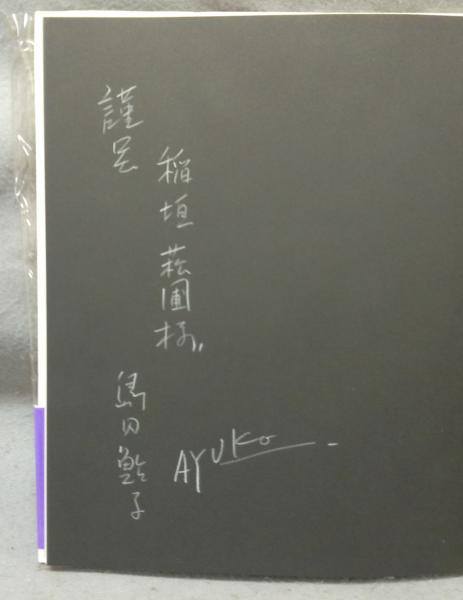 謹呈
稲垣菘圃様
島田鮎子
AYUKO